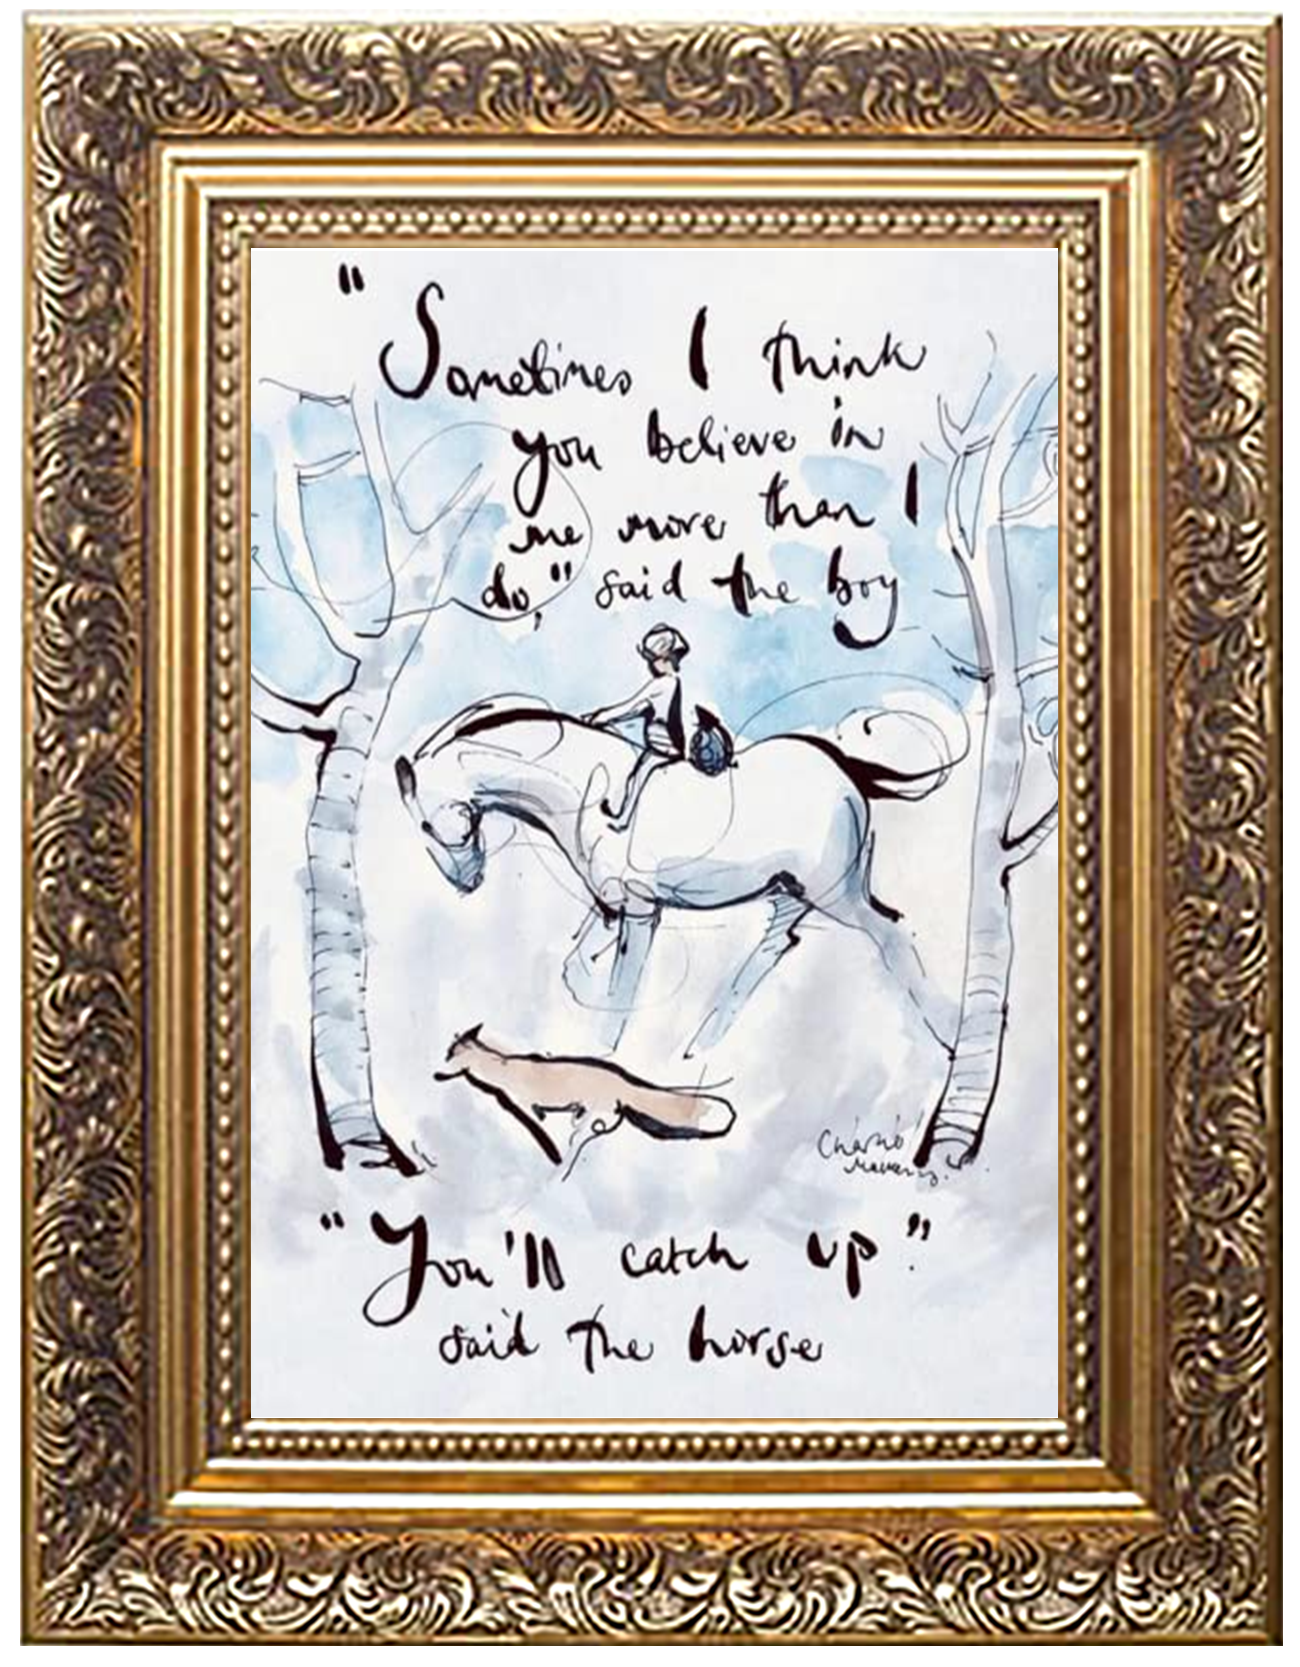 "Sometimes I think
you believe in
me more than I
do," said the boy
Charlie
Mackesy.
"You'll catch up."
said the horse